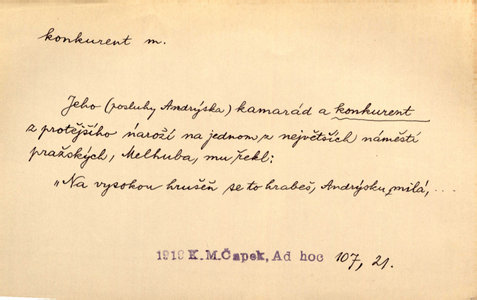 konkurent m.
Jeho (posluhy Andrýska) kamarád a konkurent
z protějšího nároží na jednom z největších náměstí
pražských, Melhuba, mu řekl:
„Na vysokou hrušeň se to hrabeš, Andrýsku milá, ...
1919 K.M.Čapek, Ad hoc 107, 21.